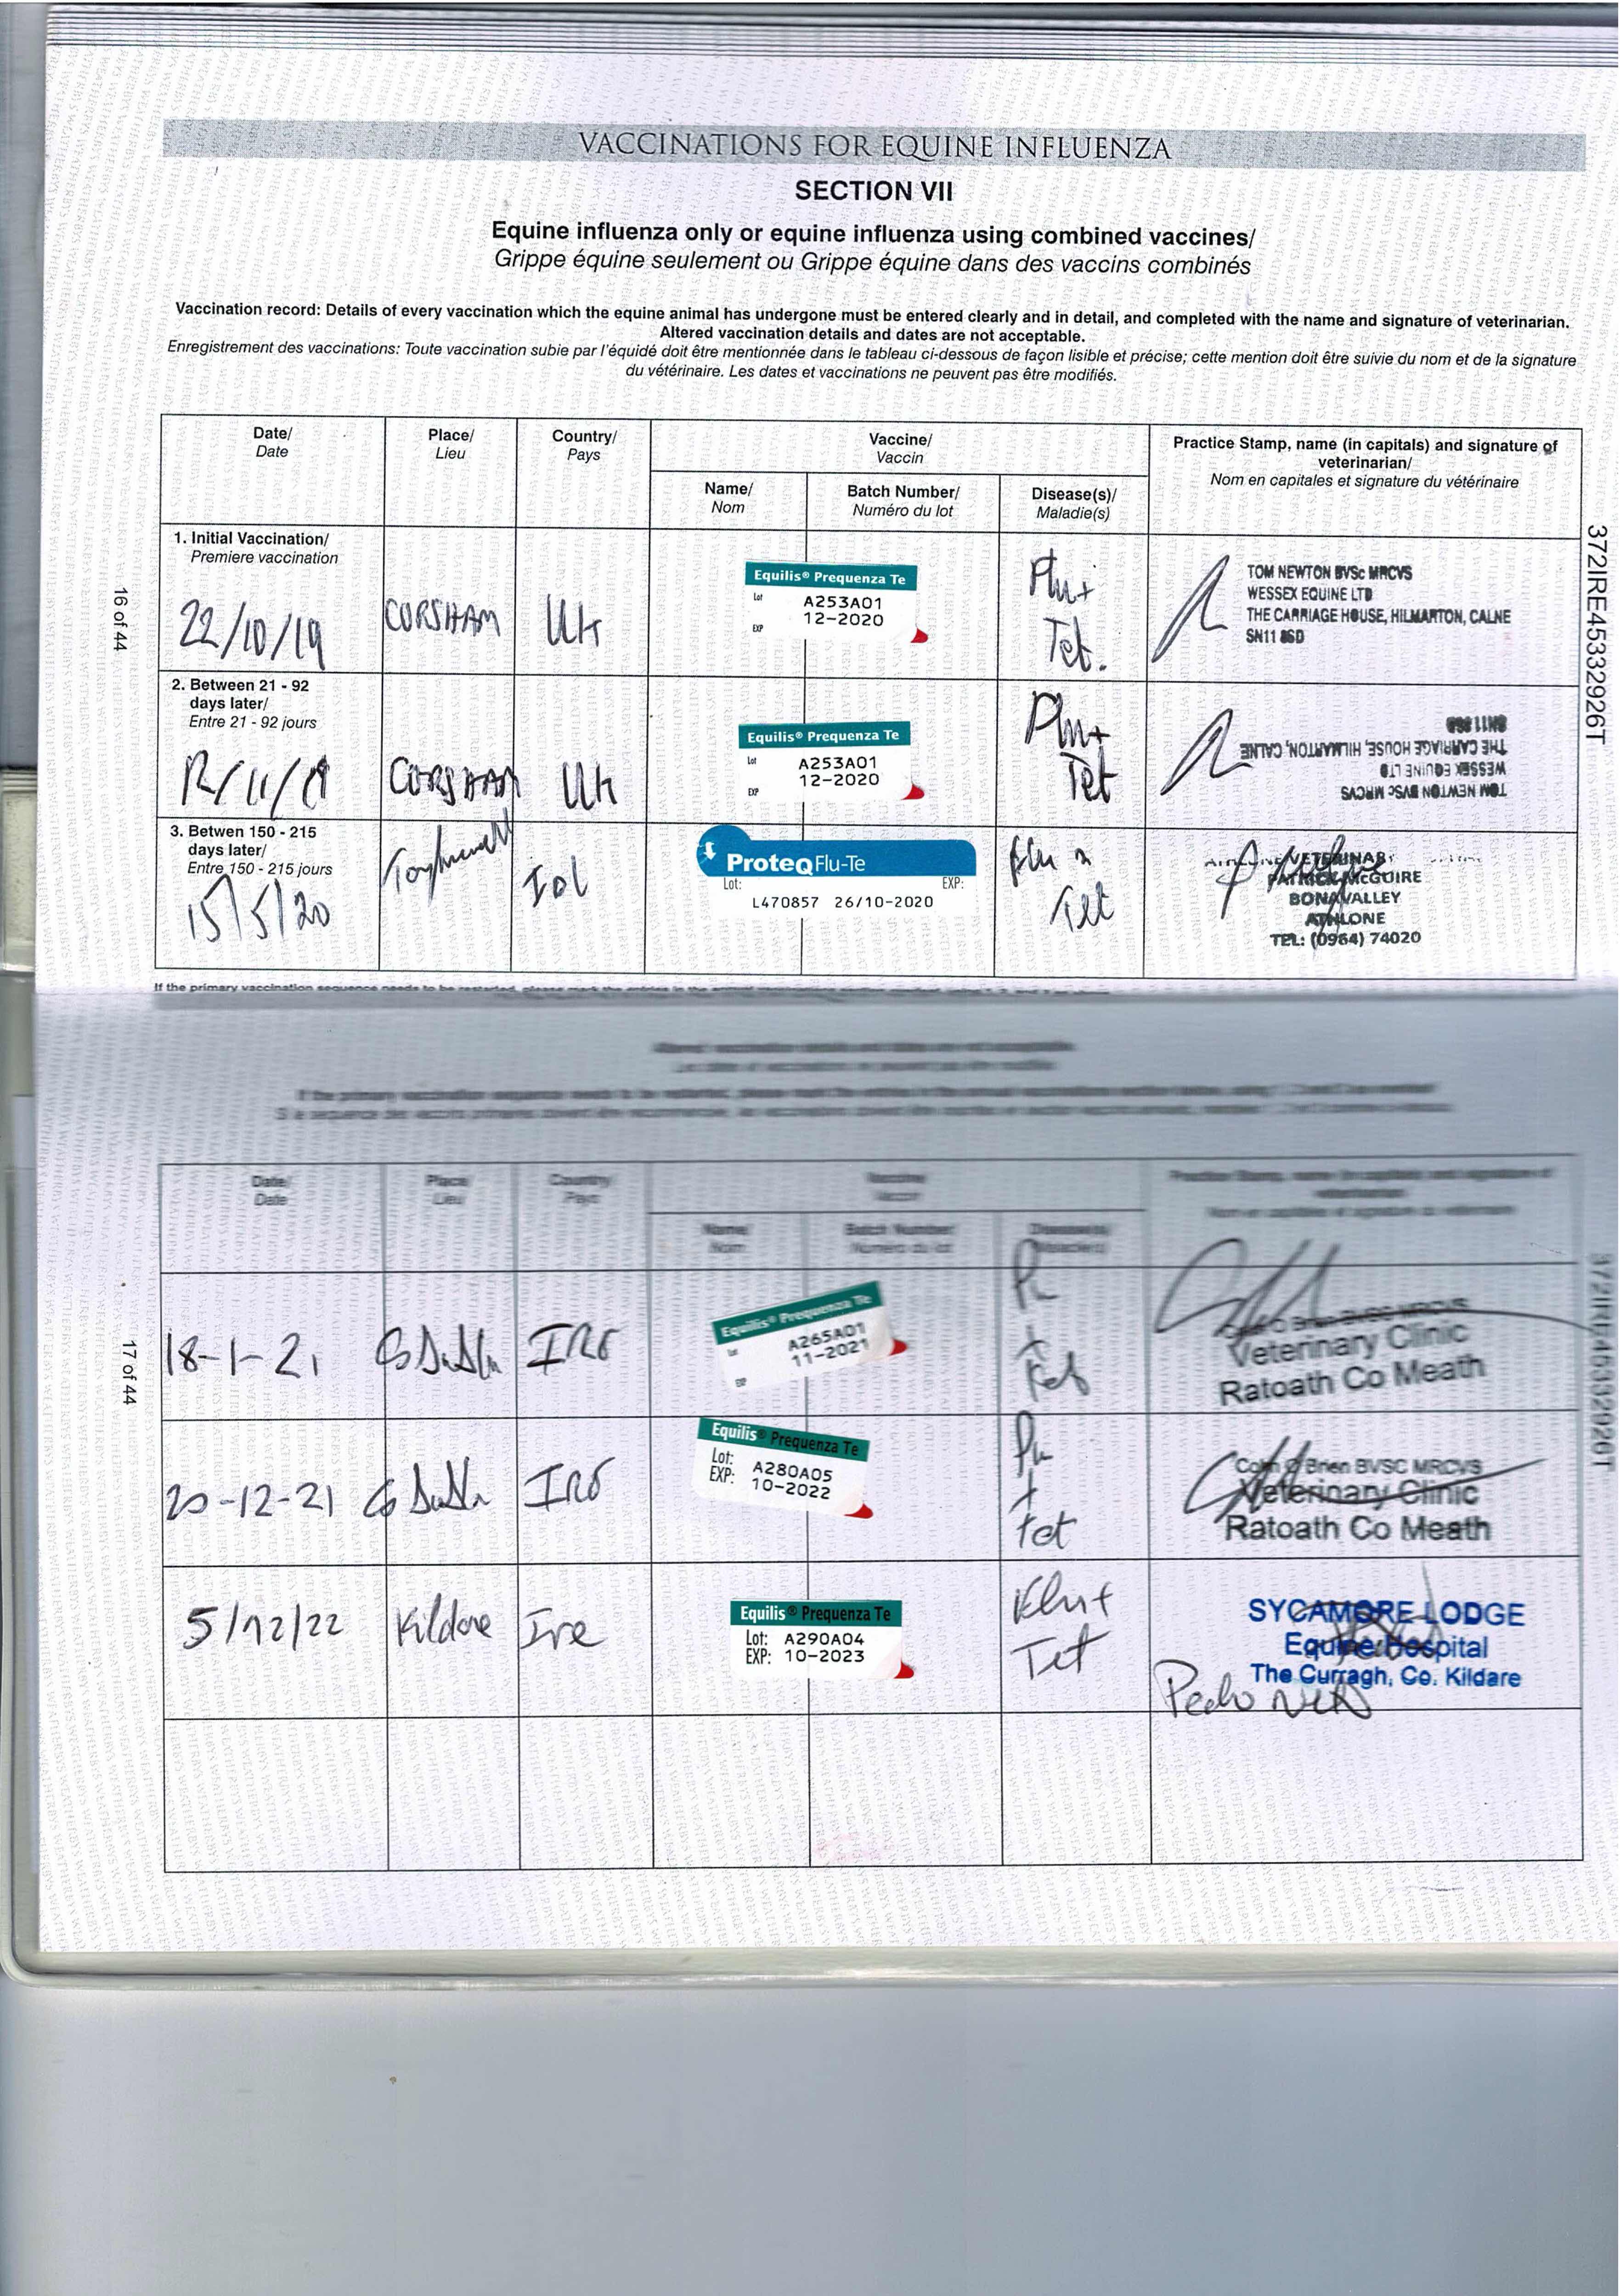 VACCINATIONS FOR EQUINE INFLUENZA
SECTION VII
Equine influenza only or equine influenza using combined vaccines/
Grippe équine seulement ou Grippe équine dans des vaccins combinés
Vaccination record: Details of every vaccination which the equine animal has undergone must be entered clearly and in detail, and completed with the name and signature of veterinarian.
Altered vaccination details and dates are not acceptable.
Enregistrement des vaccinations: Toute vaccination subie par l'équidé doit être mentionnée dans le tableau ci-dessous de façon lisible et précise; cette mention doit être suivie du nom et de la signature
du vétérinaire. Les dates et vaccinations ne peuvent pas être modifiés.
Date/
Date
Place/
Lieu
Country/
Pays
Vaccine/
Vaccin
Name/
Nom
Batch Number/
Numéro du lot
Disease(s)/
Maladie(s)
Practice Stamp, name (in capitals) and signature of
veterinarian/
Nom en capitales et signature du vétérinaire
1. Initial Vaccination/
Premiere vaccination
22/10/19
CORSHAM
Uk
Equilis® Prequenza Te
Lot
A253A01
12-2020
EXP
Flu+
Tet.
TOM NEWTON BVSc MRCVS
WESSEX EQUINE LTD
THE CARRIAGE HOUSE, HILMARTON, CALNE
SN11 8SD
2. Between 21 - 92
days later/
Entre 21 - 92 jours
12/11/19
CORSHAM
Uk
Equilis® Prequenza Te
Lot
A253A01
12-2020
EXP
Flu+
Tet
TOM NEWTON BVSc MRCVS
WESSEX EQUINE LTD
THE CARRIAGE HOUSE, HILMARTON, CALNE
SN11 8SD
3. Betwen 150 - 215
days later/
Entre 150 - 215 jours
15/5/20
ProteqFlu-Te
Lot:
EXP:
L470857 26/10-2020
Flu
Tet
VETERINARY
PATRICK McGUIRE
BONAVALLEY
ATHLONE
TEL: (0964) 74020
If the primary vaccination sequence needs to be restarted, please mark the entries in the
16 of 44
372IRE45332926T
Date/
Date
Place/
Lieu
Country/
Pays
Vaccine/
Vaccin
Name/
Nom
Batch Number/
Numéro du lot
18-1-21
Co Dublin
IRE
Equilis® Prequenza Te
Lot
A265A01
11-2021
EXP
Flu
+
Tet
Veterinary Clinic
Ratoath Co Meath
20-12-21
Co Dublin
IRE
Equilis® Prequenza Te
Lot: A280A05
EXP: 10-2022
Flu
+
Tet
Colm O Brien BVSC MRCVS
Veterinary Clinic
Ratoath Co Meath
5/12/22
Kildare
Ire
Equilis® Prequenza Te
Lot: A290A04
EXP: 10-2023
Flu+
Tet
SYCAMORE LODGE
Equine Hospital
The Curragh, Co. Kildare
17 of 44
372IRE45332926T